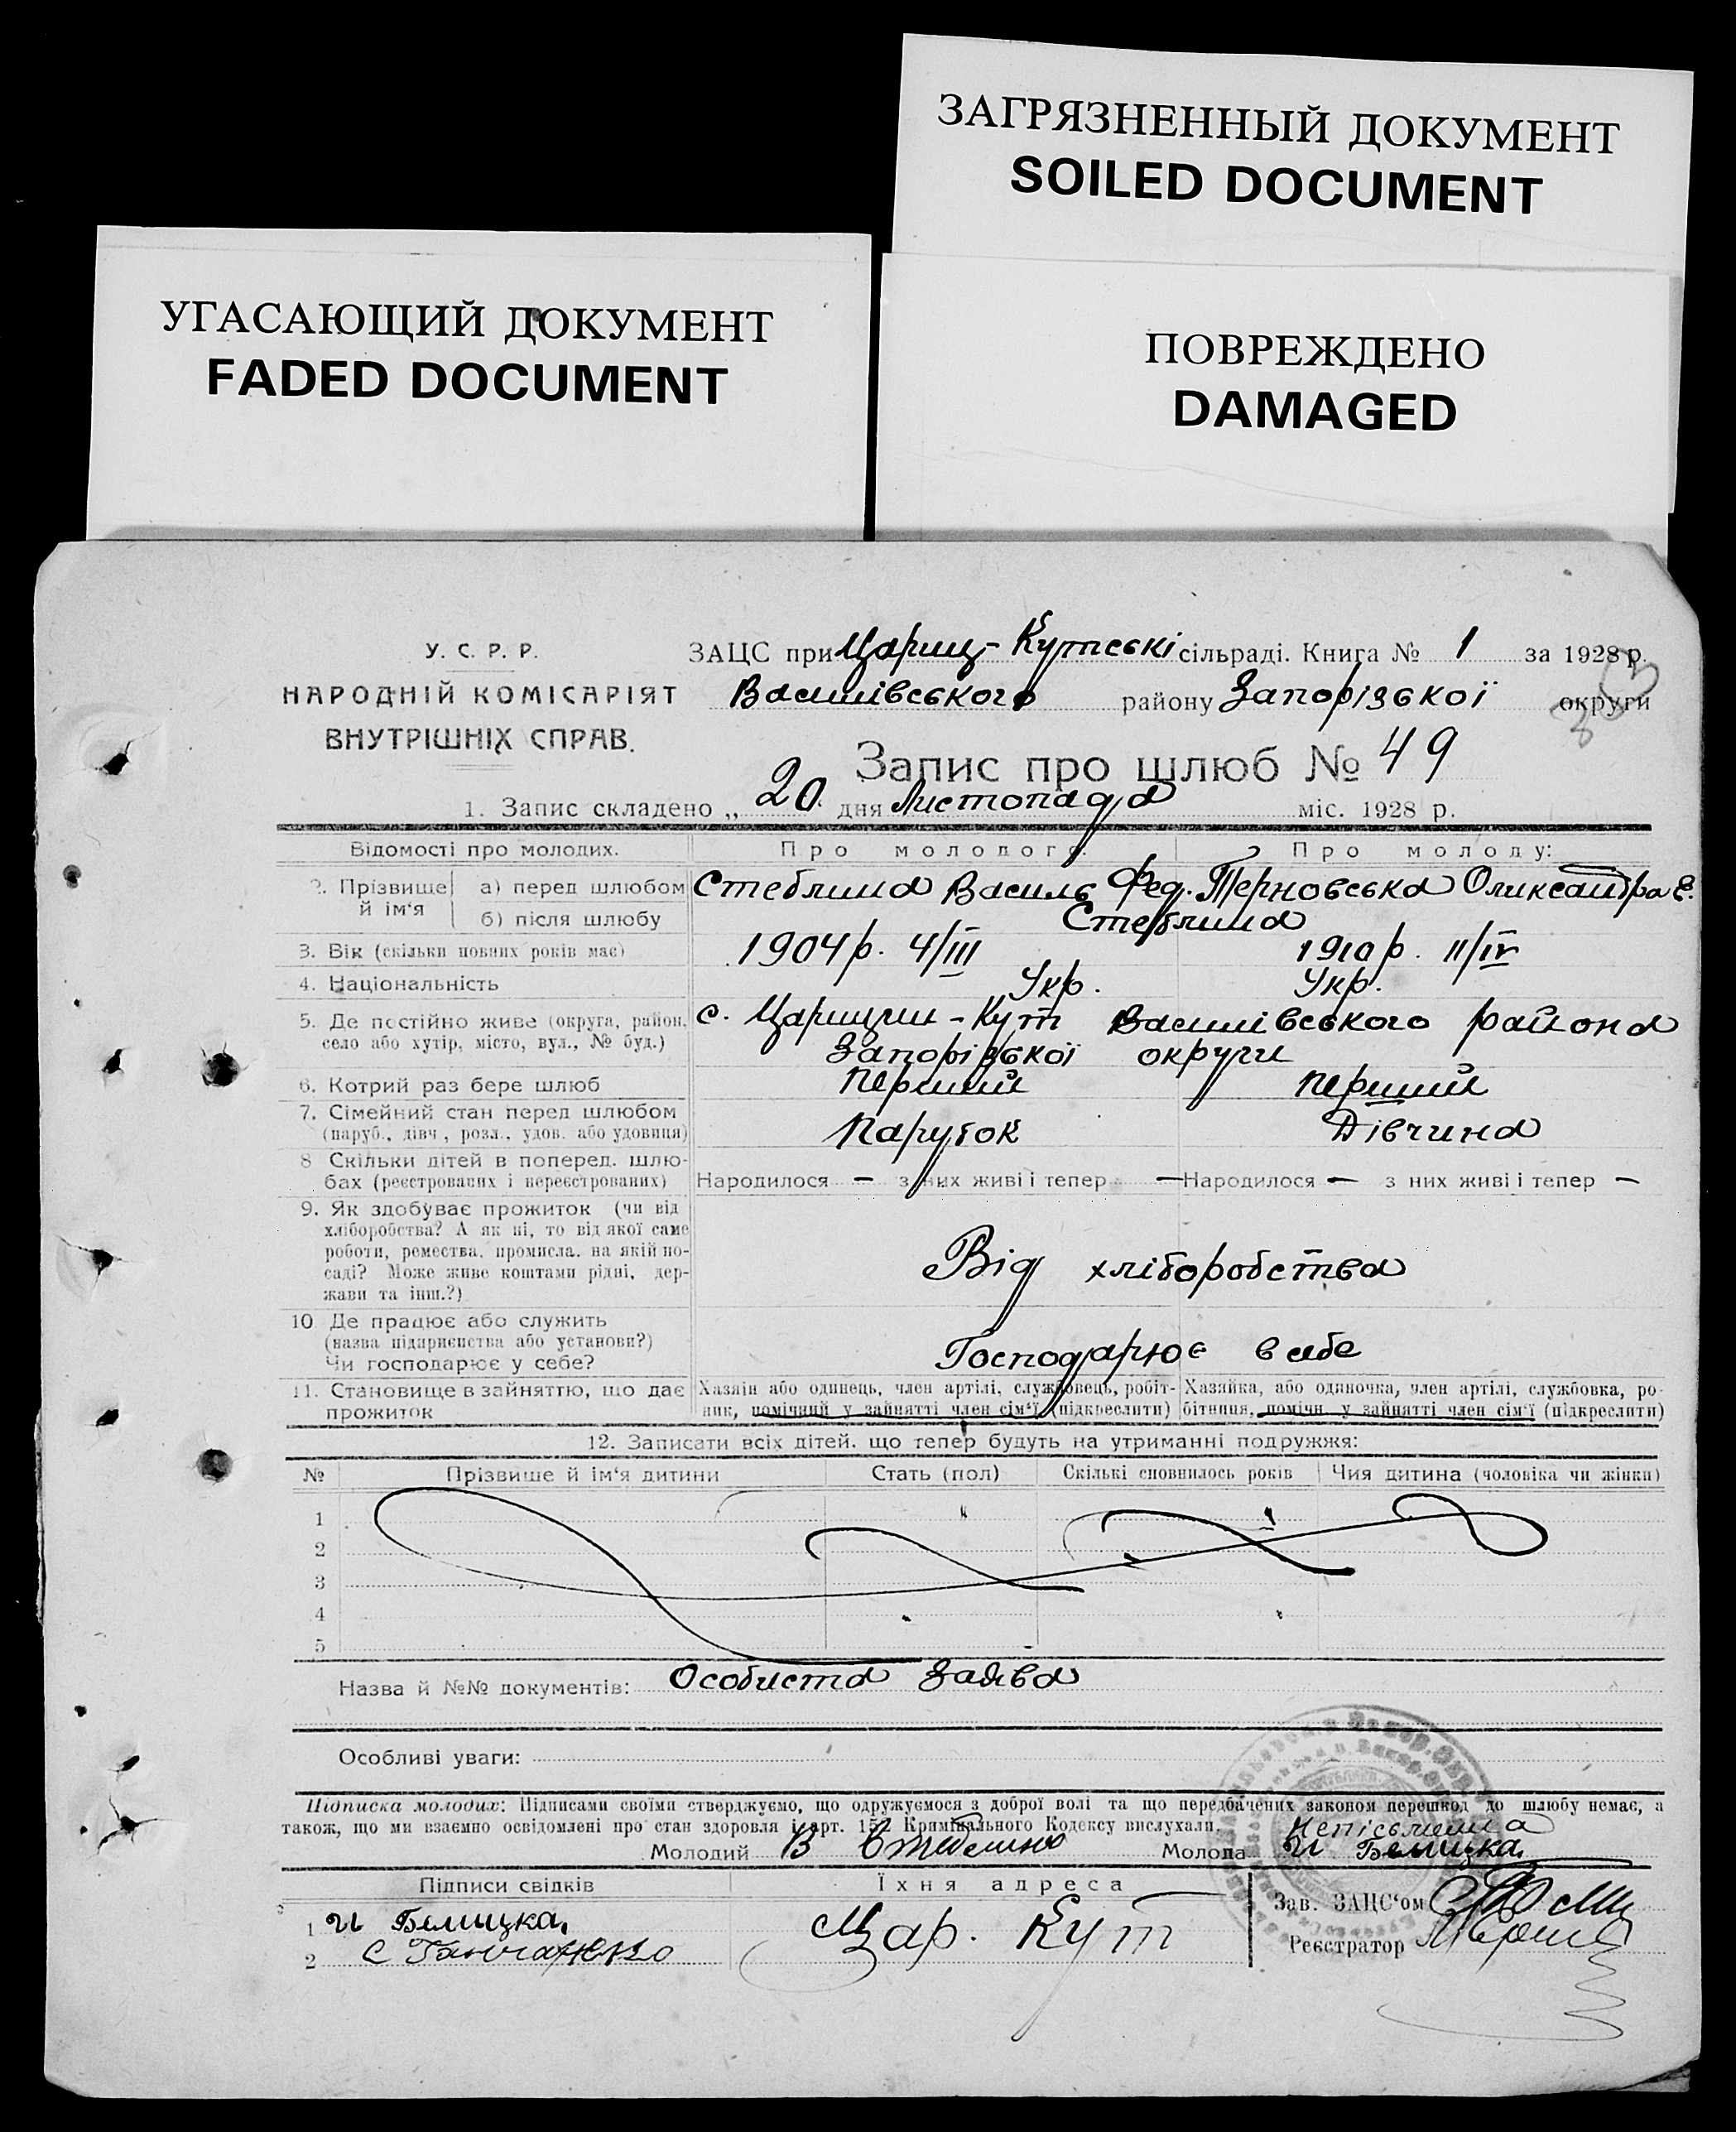 ЗАГРЯЗНЕННЫЙ ДОКУМЕНТ
SOILED DOCUMENT
УГАСАЮЩИЙ ДОКУМЕНТ
FADED DOCUMENT
ПОВРЕЖДЕНО
DAMAGED
У. С. Р. Р.
НАРОДНІЙ КОМІСАРІЯТ
ВНУТРІШНІХ СПРАВ.
ЗАЦС при Цариц-Кутські сільраді. Книга № 1 за 1928 р.
Василівського району Запорізької округи
Запис про шлюб № 49
1. Запис складено „ 20 дня Листопада міс. 1928 р.
Відомості про молодих. Про молодого. Про молоду:
2. Прізвище й ім'я а) перед шлюбом Стеблина Василь Фед. Терновська Олександра Є.
б) після шлюбу Стеблина
3. Вік (скільки повних років має) 1904 р. 4/III 1910 р. 11/IV
4. Національність Укр. Укр.
5. Де постійно живе (округа, район, с. Царицин-Кут Василівського района
село або хутір, місто, вул., № буд.) Запорізької округи
6. Котрий раз бере шлюб Перший Перший
7. Сімейний стан перед шлюбом
(паруб., дівч., розл., удов. або удовиця) Парубок Дівчина
8 Скільки дітей в поперед. шлю-
бах (реєстрованих і нереєстрованих) Народилося — з них живі і тепер — Народилося — з них живі і тепер —
9. Як здобуває прожиток (чи від
хліборобства? А як ні, то від якої саме
роботи, ремества, промисла, на якій по-
саді? Може живе коштами рідні, дер-
жави та інш.?)
Від хліборобства
10 Де працює або служить
(назва підприємства або установи?)
Чи господарює у себе?
Господарює в себе
11. Становище в зайняттю, що дає
прожиток
Хазяїн або одинець, член артілі, службовець, робіт-
ник, помічний у зайнятті член сім'ї (підкреслити)
Хазяйка, або одиночка, член артілі, службовка, ро-
бітниця, помічн. у зайнятті член сім'ї (підкреслити)
12. Записати всіх дітей, що тепер будуть на утриманні подружжя:
№ Прізвище й ім'я дитини Стать (пол) Скількі сповнилось років Чия дитина (чоловіка чи жінки)
1
2
3
4
5
Назва й №№ документів: Особиста заява
Особливі уваги:
Підписка молодих: Підписами своїми стверджуємо, що одружуємося з доброї волі та що передбачених законом перешкод до шлюбу немає, а
також, що ми взаємно освідомлені про стан здоровля і арт. Кримінального Кодексу вислухали.
Неписьменна
Молодий В Стеблина Молода И Белицка
Підписи свідків Їхня адреса
1 И Белицка
2 С Гончаренко
Цар. Кут
Зав. ЗАЦС'ом
Реєстратор